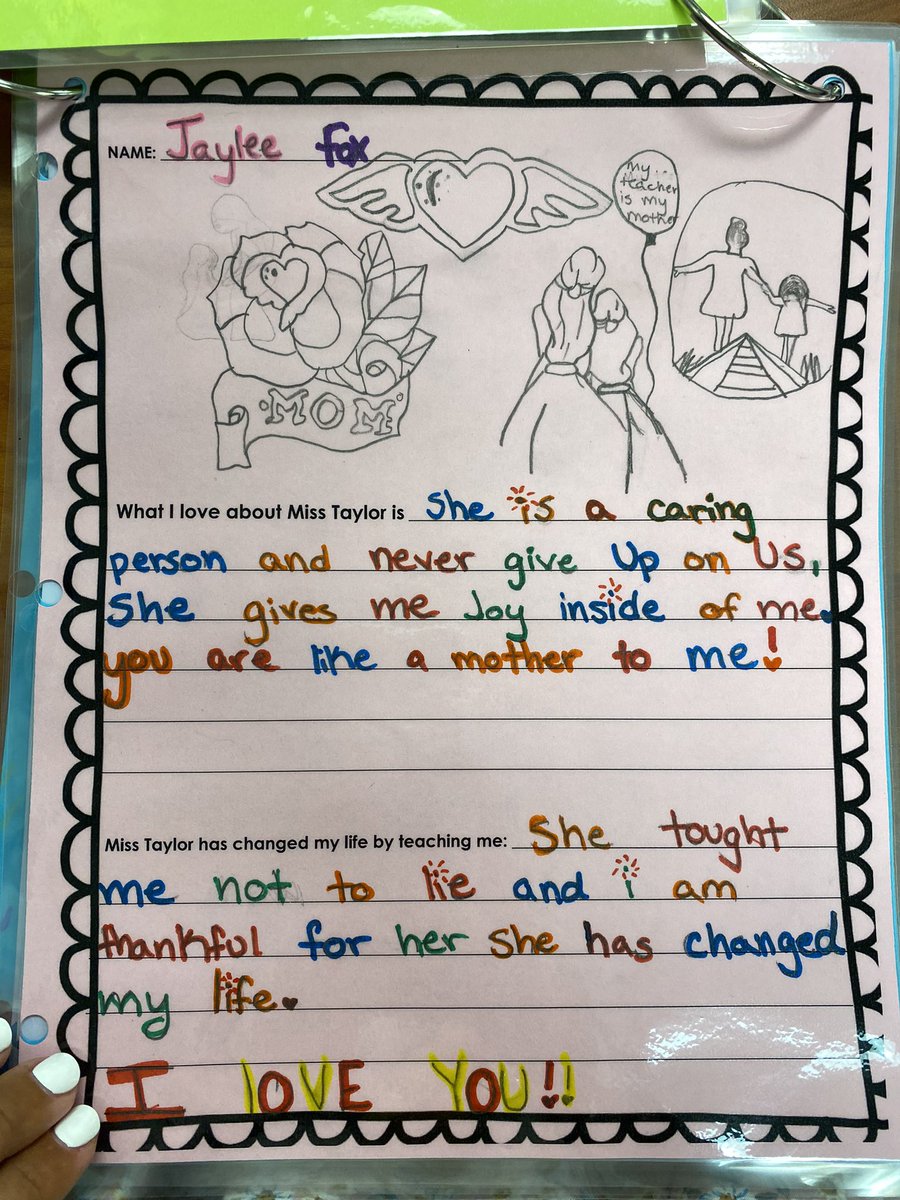 NAME: Jaylee fox
my
teacher
is my
mother
MOM
What I love about Miss Taylor is she is a caring
person and never give Up on US,
She gives me Joy inside of me.
you are like a mother to me!
Miss Taylor has changed my life by teaching me: She tought
me not to lie and i am
thankful for her she has changed
my life.
I lOVE YOU!!